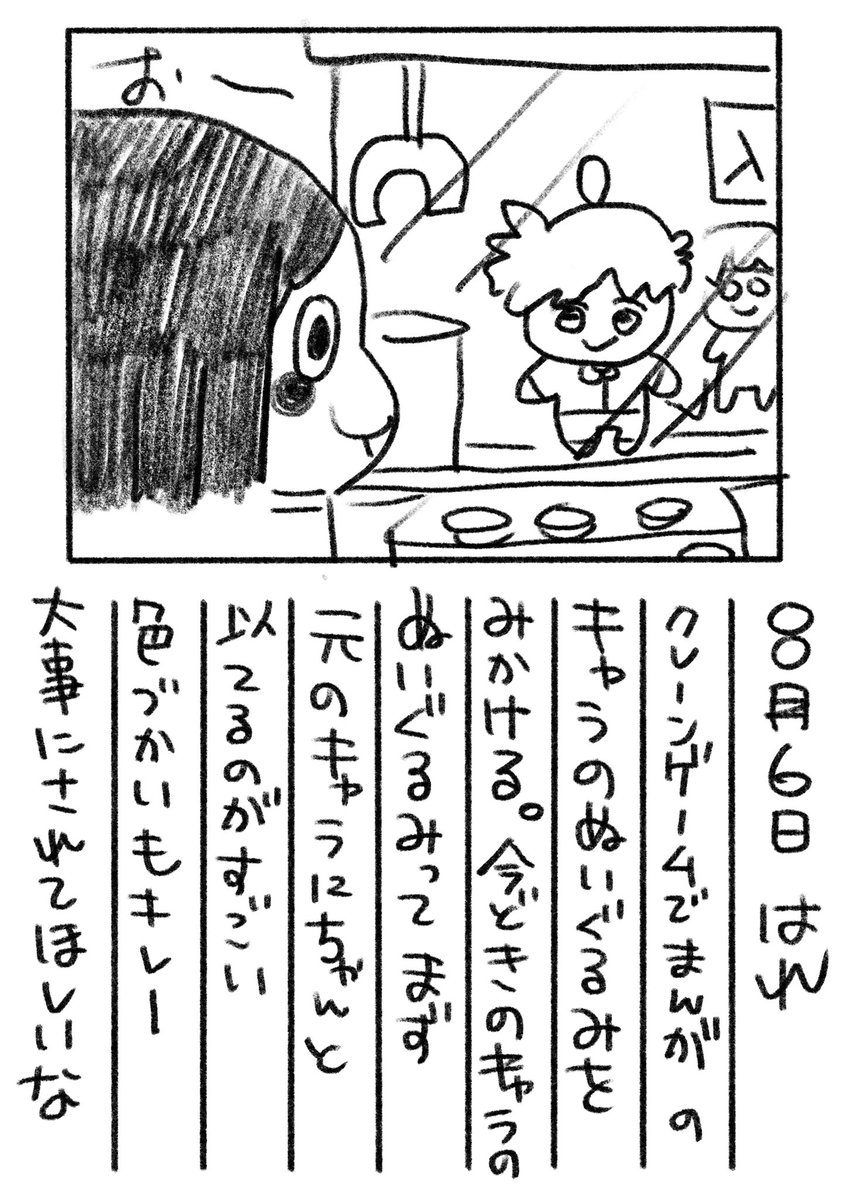 お〜
入
8月6日 はれ
クレーンゲームでまんがの
キャラのぬいぐるみを
みかける。今どきのキャラの
ぬいぐるみってまず
元のキャラにちゃんと
似てるのがすごい
色づかいもキレー
大事にされてほしいな